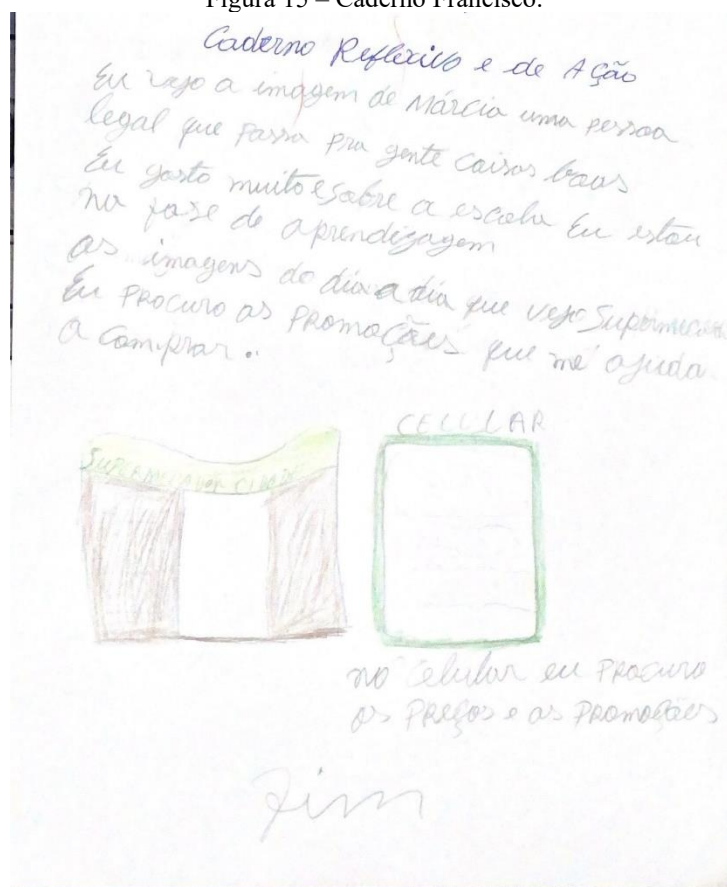 Figura 15 – Caderno Francisco.
Caderno Reflexivo e de Ação
Eu vejo a imagem de Márcia uma pessoa
legal que passa pra gente coisas boas
Eu gosto muito e sobre a escola Eu estou
na fase de aprendizagem
as imagens do dia a dia que vejo
Eu PROCURO as PROMOÇÕES que me ajuda
a comprar..
CELULAR
SUPERMERCADO CIDADE
no celular eu PROCURO
os PREÇOS e as PROMOÇÕES
Fim